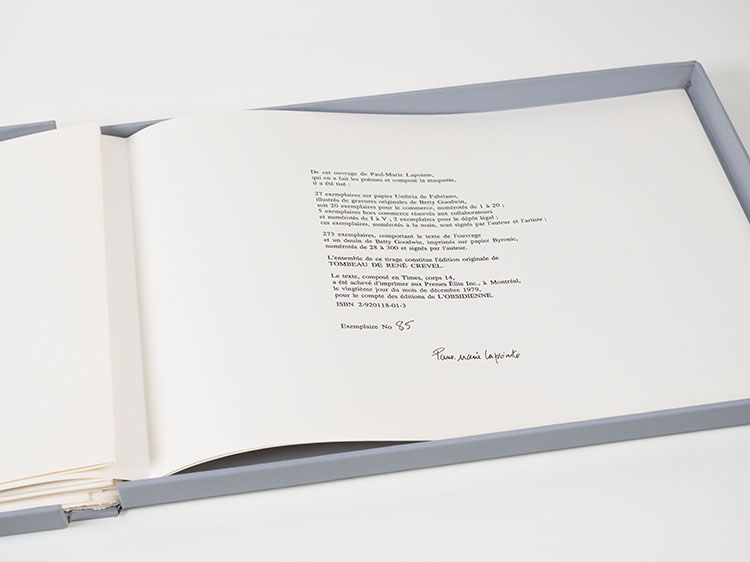 De cet ouvrage de Paul-Marie Lapointe,
qui en a fait les poèmes et composé la maquette,
il a été tiré :
27 exemplaires sur papier Umbria de Fabriano,
illustrés de gravures originales de Betty Goodwin,
soit 20 exemplaires pour le commerce, numérotés de 1 à 20 ;
5 exemplaires hors commerce réservés aux collaborateurs
et numérotés de I à V ; 2 exemplaires pour le dépôt légal ;
ces exemplaires, numérotés à la main, sont signés par l'auteur et l'artiste ;
273 exemplaires, comportant le texte de l'ouvrage
et un dessin de Betty Goodwin, imprimés sur papier Byronic,
numérotés de 28 à 300 et signés par l'auteur.
L'ensemble de ce tirage constitue l'édition originale de
TOMBEAU DE RENÉ CREVEL.
Le texte, composé en Times, corps 14,
a été achevé d'imprimer aux Presses Élite Inc., à Montréal,
le vingtième jour du mois de décembre 1979,
pour le compte des éditions de L'OBSIDIENNE.
ISBN 2-920118-01-3
Exemplaire No 85
Paul-Marie Lapointe